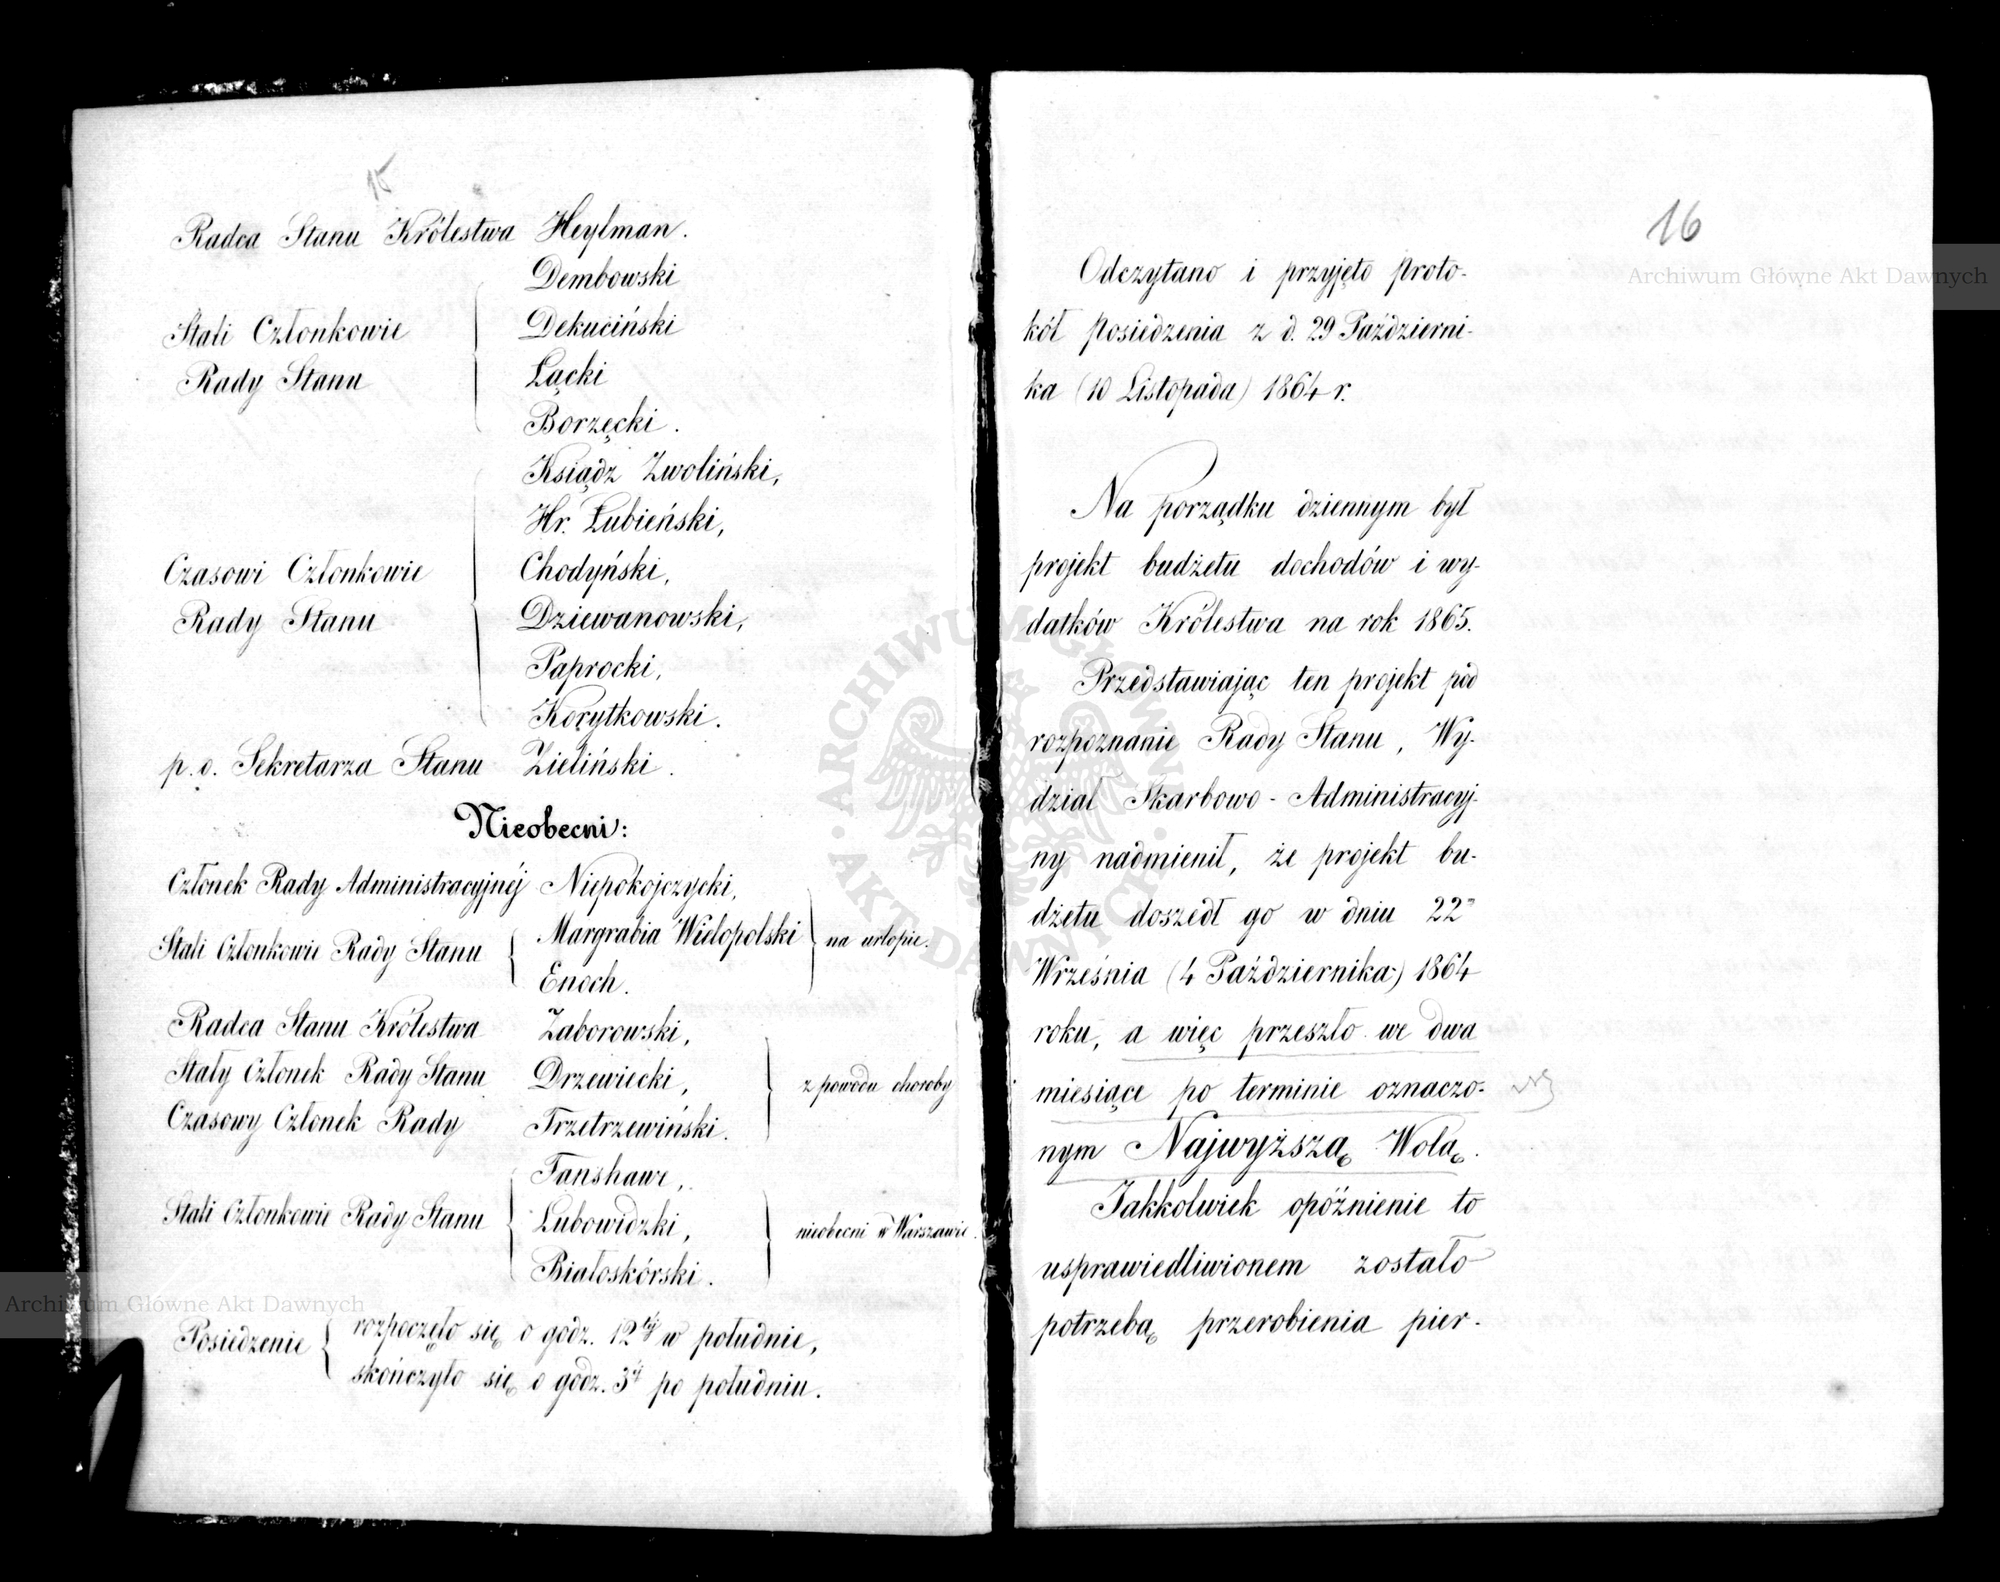 15
Radca Stanu Królestwa Heylman.
Dembowski
Stali Członkowie Dekuciński
Rady Stanu Łącki
Borzęcki.
Ksiądz Zwoliński,
Hr. Łubieński,
Czasowi Członkowie Chodyński,
Rady Stanu Dziewanowski,
Paprocki,
Korytkowski.
p. o. Sekretarza Stanu Zieliński.
Nieobecni:
Członek Rady Administracyjnéj Niepokojczycki,
Stali Członkowie Rady Stanu Margrabia Wielopolski na urlopie.
Enoch.
Radca Stanu Królestwa Zaborowski,
Stały Członek Rady Stanu Drzewiecki, z powodu choroby
Czasowy Członek Rady Trzetrzewiński.
Fanshawe,
Stali Członkowie Rady Stanu Lubowidzki, nieobecni w Warszawie.
Białoskórski.
Posiedzenie rozpoczęło się o godz. 12téj w południe,
skończyło się o godz. 3éj po południu.
16
Odczytano i przyjęto proto-
kół posiedzenia z d. 29 Październi-
ka (10 Listopada) 1864 r.
Na porządku dziennym był
projekt budżetu dochodów i wy-
datków Królestwa na rok 1865.
Przedstawiając ten projekt pod
rozpoznanie Rady Stanu, Wy-
dział Skarbowo-Administracyj-
ny nadmienił, że projekt bu-
dżetu doszedł go w dniu 22"
Września (4 Października) 1864
roku, a więc przeszło we dwa
miesiące po terminie oznaczo-
nym Najwyższą Wolą.
Jakkolwiek opóźnienie to
usprawiedliwionem zostało
potrzebą przerobienia pier-
Archiwum Główne Akt Dawnych
Archiwum Główne Akt Dawnych
ARCHIWUM GŁÓWNE AKT DAWNYCH